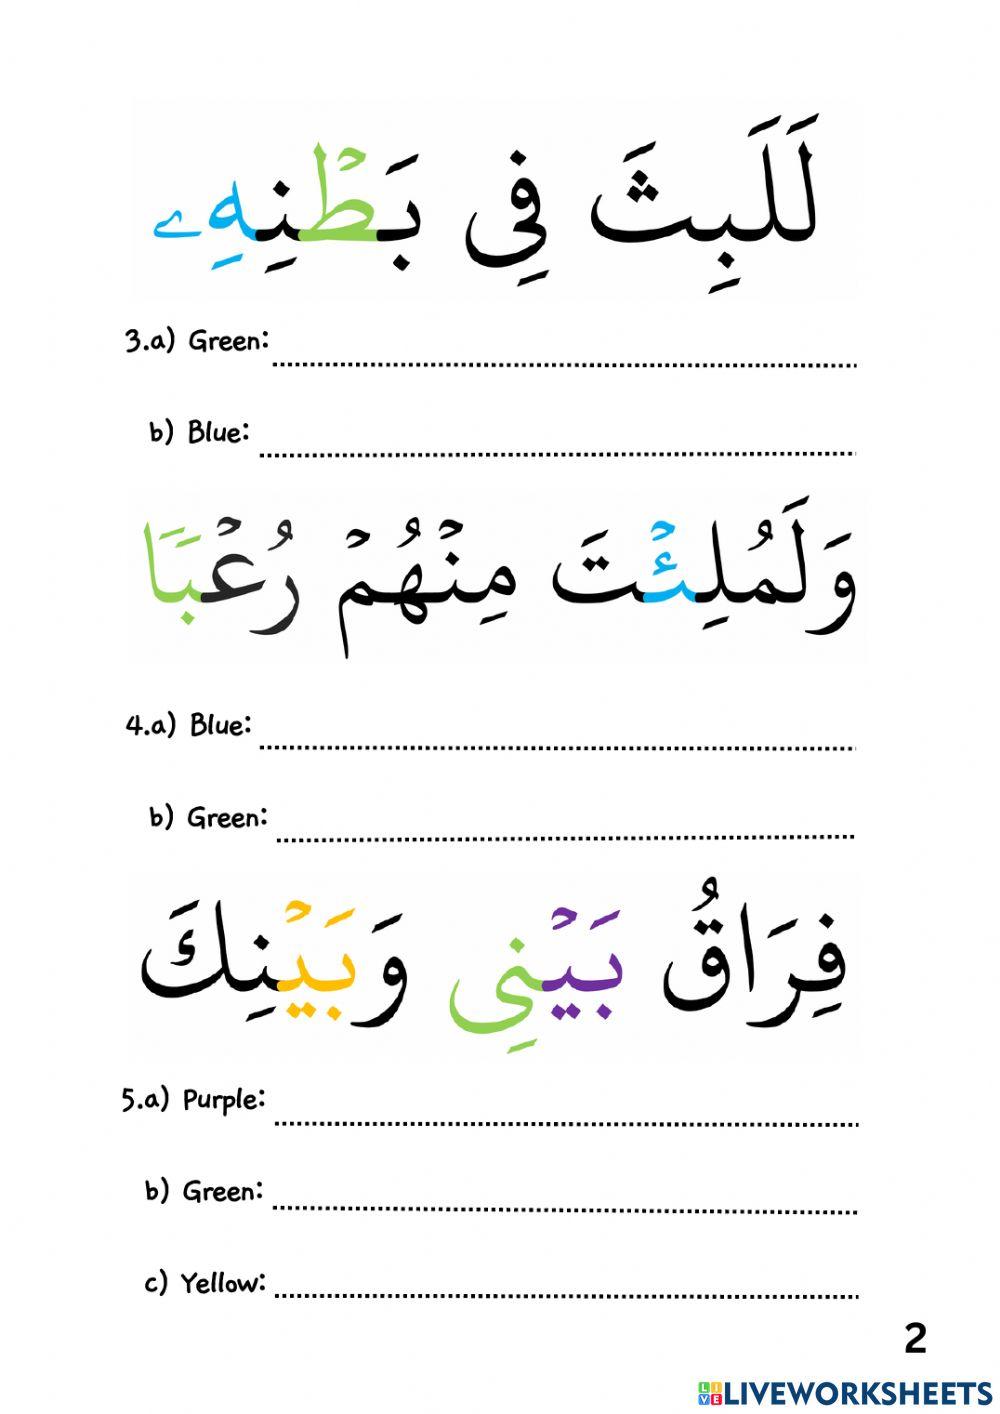 لَلَبِثَ فِى بَطۡنِهِۦ
3.a) Green:
b) Blue:
وَلَمُلِئۡتَ مِنۡهُمۡ رُعۡبٗا
4.a) Blue:
b) Green:
فِرَاقُ بَيۡنِى وَبَيۡنِكَ
5.a) Purple:
b) Green:
c) Yellow:
2
LIVE LIVEWORKSHEETS